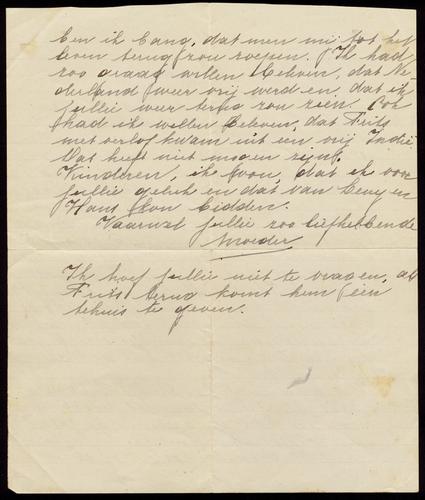 ben ik bang, dat men mij tot het
leven terug zou roepen. Ik had
zoo graag willen beleven, dat Ne-
derland weer vrij werd en, dat ik
jullie weer terug zou zien. Ook
had ik willen beleven, dat Frits
met verlof kwam uit een vrij Indië.
Dat heeft niet mogen zijn.
Kinderen, ik hoop, dat ik voor
jullie gebed en dat van en
Hans kon bidden.
Vaarwel jullie zoo liefhebbende
Moeder
Ik hoef jullie niet te vragen, als
Frits terug komt hem een
tehuis te geven.